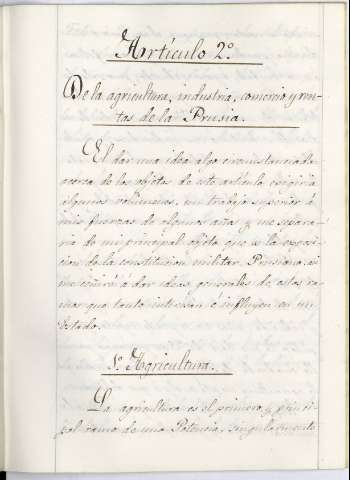 Artículo 2º.
De la agricultura, industria, comercio y ren-
tas de la Prusia.
El dar una idea algo circunstanciada
acerca de los objetos de este artículo exigiria
algunos volumenes, un trabajo superior á
mis fuerzas de algunos años y me separa-
ria de mi principal objeto que es la exposi-
cion de la constitucion militar Prusiana, asi
me ceñiré á dar ideas generales de estos ra-
mos que tanto interesan é influyen en un
Estado.
1º Agricultura.
La agricultura es el primero y princi-
pal ramo de una Potencia, singularmente